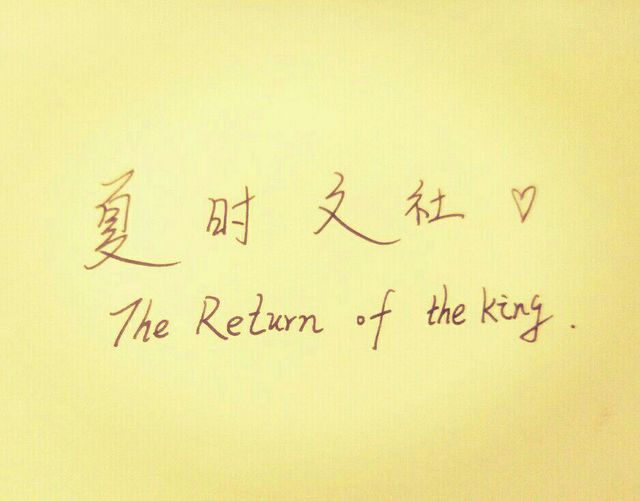 夏时文社♡
The Return of the king.